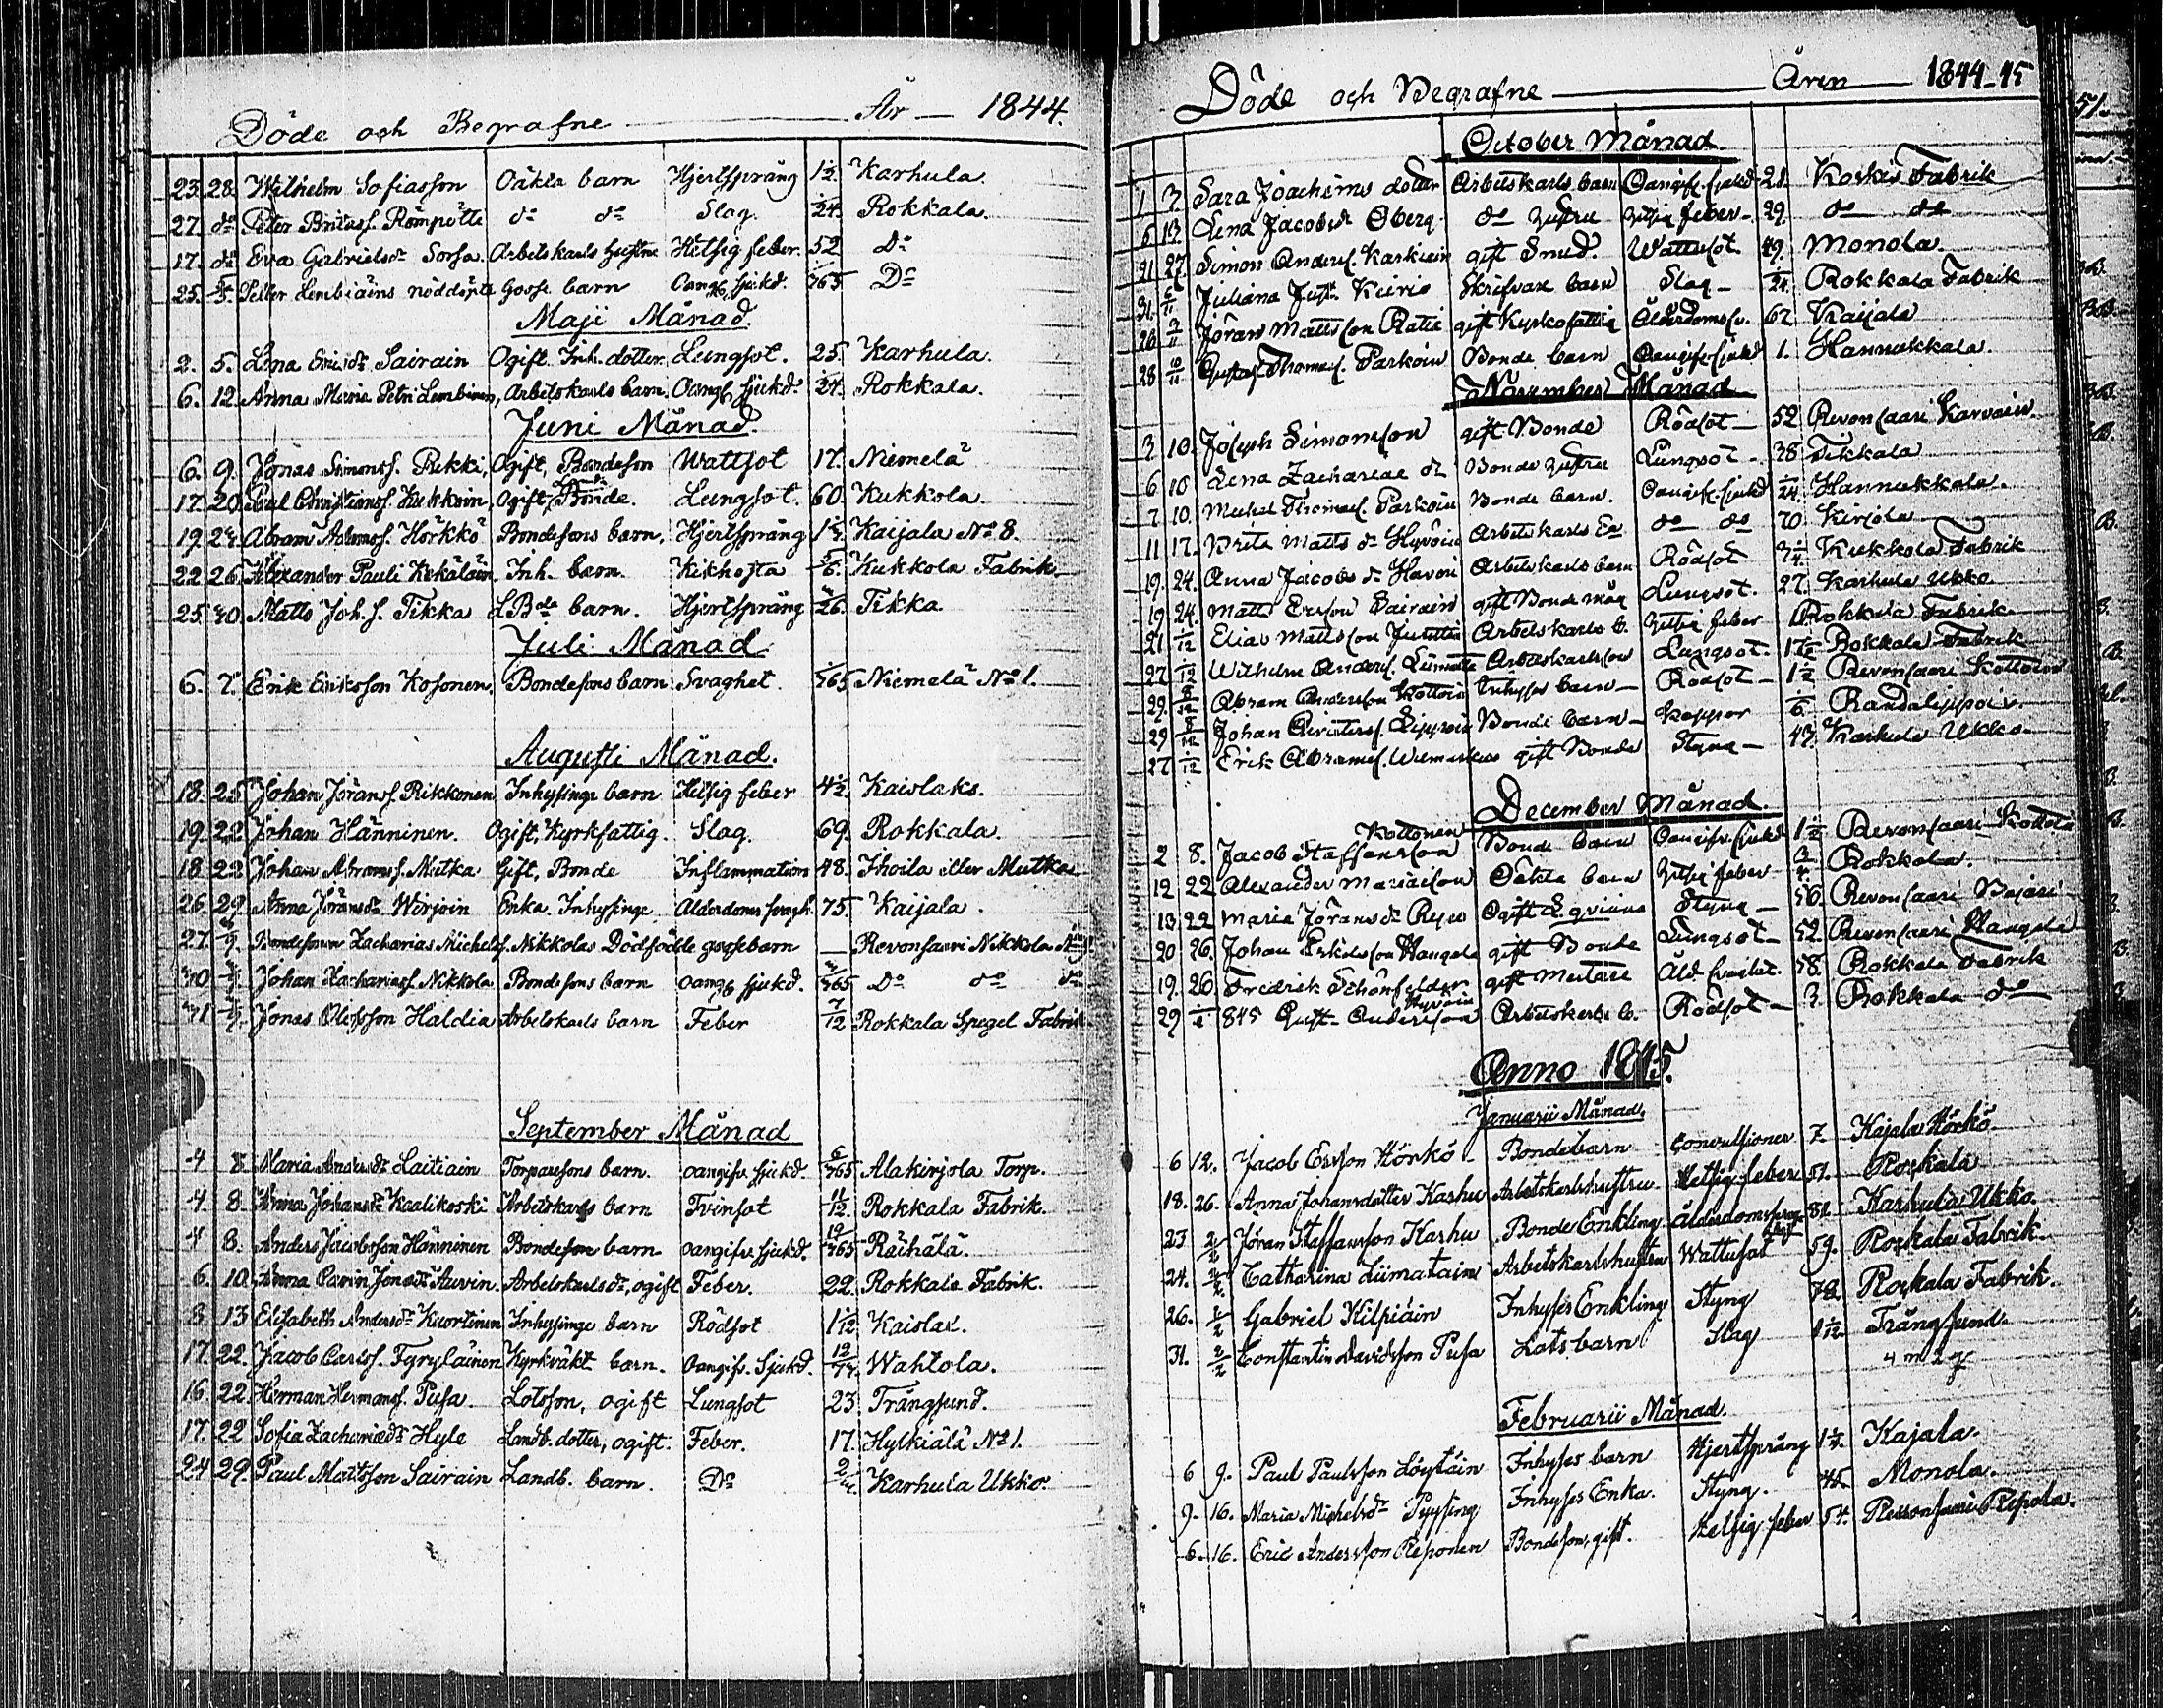 Döde och Begrafne År 1844.
23. 28. Wilhelm Sofiasson Oäkta barn Hjertsprång 1 1/2. Karhula.
27. do Peter Britass. Römpötti do do Slag. 1/24. Rokkala.
17. do Eva Gabrielsdr Sorsa. Arbetskarls hustru Hetsig feber. 52 Do
25. 5/5. Petter Lembiäins nöddöpte Gosse barn Oangif. sjukd. 1/365 Do
Maji Månad.
2. 5. Lena Ericsdr Sairain Ogift Inh. dotter Lungsot. 25. Karhula.
6. 12. Anna Maria Petri Lembinen, Arbetskarls barn. Oangif. sjukd. 1/24. Rokkala.
Juni Månad.
6. 9. Jonas Simonss. Pukki, Ogift, Bondeson Wattsot 17. Niemelä
17. 20. Christianss. Kukkoin, Ogift Bonde. Lungsot. 60. Kukkola.
19. 24. Abram Adamss. Hörkkö Bondesons barn, Hjertsprång 1 1/4. Kaijala No 8.
22. 26. Alexander Pauli Kekäläin. Inh. barn. Kikhosta 5/6. Kukkola Fabrik.
25. 30. Matts Joh. s. Tikka LBde barn. Hjertsprång /26. Tikka
Juli Månad
6. 7. Erik Eriksson Kosonen. Bondesons barn Svaghet. 1/365 Niemelä No 1.
Augusti Månad.
18. 25. Johan Jöranss. Rikkonen Inhysings barn Hetsig feber 4 1/2. Kaislaks.
19. 22. Johan Hänninen. Ogift, Kyrkfattig. Slag. 69. Rokkala.
18. 22. Johan Abramss. Mutka Gift, Bonde Inflammation 48. Ihoila eller Mutka
26. 29. Anna Jöransdr Wirjoin Enka. Inhysinge Alderdoms svagh. 75. Kaijala.
27. /9. Bondesonen Zacharias Michelss. Nikkolas Dödfödde gossebarn — Revonsaari Nikkola No 9.
30 /9. Johan Zachariass. Nikkola Bondesons barn oangif. sjukd. /365 Do do do
31 /9. Jonas Olofsson Haldia Arbetskarls barn Feber 7/12 Rokkala Spegel Fabrik.
September Månad
4 8. Maria Andersdr Laitiain Torparesons barn. oangifv. sjukd. 6/365 Alakirjola Torp.
4 8. Anna Johansdr Kaalikoski Arbetskarls barn Tvinsot 11/12. Rokkala Fabrik.
4 8. Anders Jacobsson Hänninen Bondeson barn oangifv. sjukd. 19/365 Räihälä.
6. 10. Anna Carin Jonasdr Auvin. Arbetskarlsdr, ogift Feber. 22. Rokkala Fabrik.
8. 13 Elisabeth Andersdr Kuortinen Inhysings barn Rödsot 1 1/12 Kaislax.
17. 22. Jacob Carlss. Tyryläinen Kyrkväkt. barn. Oangifv. Sjukd. Wahtola.
16. 22. Herman Hermanss. Pusa. Lotsson, ogift Lungsot 23. Trångsund.
17. 22 Sofia Zachariædr Hyle Landb. dotter, ogift. Feber. 17. Hylkiälä No 1.
24 29. Paul Mattsson Sairain Landb. barn. Do 2/ Karhula Ukko.
Döde och Begrafne Åren 1844-45
October Månad
1 3. Sara Joachims dotter Arbetskarls barn Oangifv. sjukd. 21. Koskis Fabrik
6 13. Lena Jacobsdr Öberg do hustru hetsig feber. 29. do do
21 27. Simon Anderss. Karkiain gift Smed. Wattusot 49. Monola.
31. /11 Juliana Just. Kurio Skrifvare barn Slag 1/24. Rokkala Fabrik
26 3/11 Jöran Mattsson Ratia gift Kyrkofattig Ålderdomssv. 67 Kaijala
28 10/11 Gustaf Thomass. Parkoin Bonde barn Oangifv. sjukd 1. Hannukkala
November Månad
3 10. Joseph Simonsson gift Bonde Rödsot 52 Revonsaari Karvain.
6 10 Lena Zachariæ dr Bonde hustru Lungsot 38 Tikkala
7 10. Michel Thomass. Parkoin Bonde barn. Oangifv. sjukd 1/24. Hannukkala.
11 17. Brita Matts dr Hyvöin Arbetskarls Ea do do 70 Kirjola
19. 24. Anna Jacobs dr Haven Arbetskarls barn Rödsot 3 1/4. Kukkola Fabrik
19 24. Matts Ericson Sairain gift Bonde måg Lungsot. 27. Karhula Ukko.
21 1/12 Elias Mattsson Arbetskarls b. hetsig feber 1 Rokkala Fabrik
27 1/12 Wilhelm Anderss. Liimatta Arbetskarlsson Lungsot 17 Rokkala Fabrik
29. 8/12 Abram Andersson Kottoin Inhyses barn Rödsot 1 1/2 Revonsaari Kottoin
29 8/12 Johan Christerss. Sipponin Bonde barn Koppor /6. Randalippoin.
27 1/12 Erik Abramss. gift Bonde Styng 43. Karhula Ukko.
December Månad.
2 8. Jacob Staffansson Kottonen Bonde barn Oangifv. sjukd 1 1/2 Revonsaari Kottola
12 22 Alexander Mariaeson Oäkta barn hetsig feber 3/4. Rokkala.
13. 22 Maria Jöransdr Repo Ogift Styng 56. Revonsaari
20 26. Johan Erikson Hangala gift Bonde Lungsot 52. Revonsaari Hangala
19. 26 Fredrik Schönfelder gift mästare Åld. svaghet. 58. Rokkala Fabrik
29 /1 845 Gust. Andersson Hyvöin Arbetskarls b. Rödsot 3. Rokkala do
Anno 1845.
Januarii Månad.
6 12. Jacob Ersson Hörkö Bondebarn Convulsioner 7. Kajala Hörkö.
18. 26. Anna Johansdotter Karhu Arbetskarlshustru Hetsig feber 51. Rokkala
23 2/2 Jöran Staffansson Karhu Bonde Enkling Ålderdomssvaghet 81. Karhula Ukko.
24. 2/2. Catharina Liimatain Arbetskarlshustru Wattusot 59. Rokkala Fabrik.
26. 2/2 Gabriel Kilpiäin Inhyses Enkling Styng 78. Rokkala Fabrik.
31. 2/2 Constantin Davidsson Pusa Lotsbarn Slag /12. Trångsund.
Februarii Månad.
6 9. Paul Paulsson Löytäin Inhyses barn Hjertsprång 1 1/4. Kajala.
9. 16. Maria Michelsdr Pyysing Inhyses Enka. Styng. 45. Monola.
6. 16. Eric Andersson Reponen Bondeson, gift. Hetsig feber 54. Revonsaari Repola.